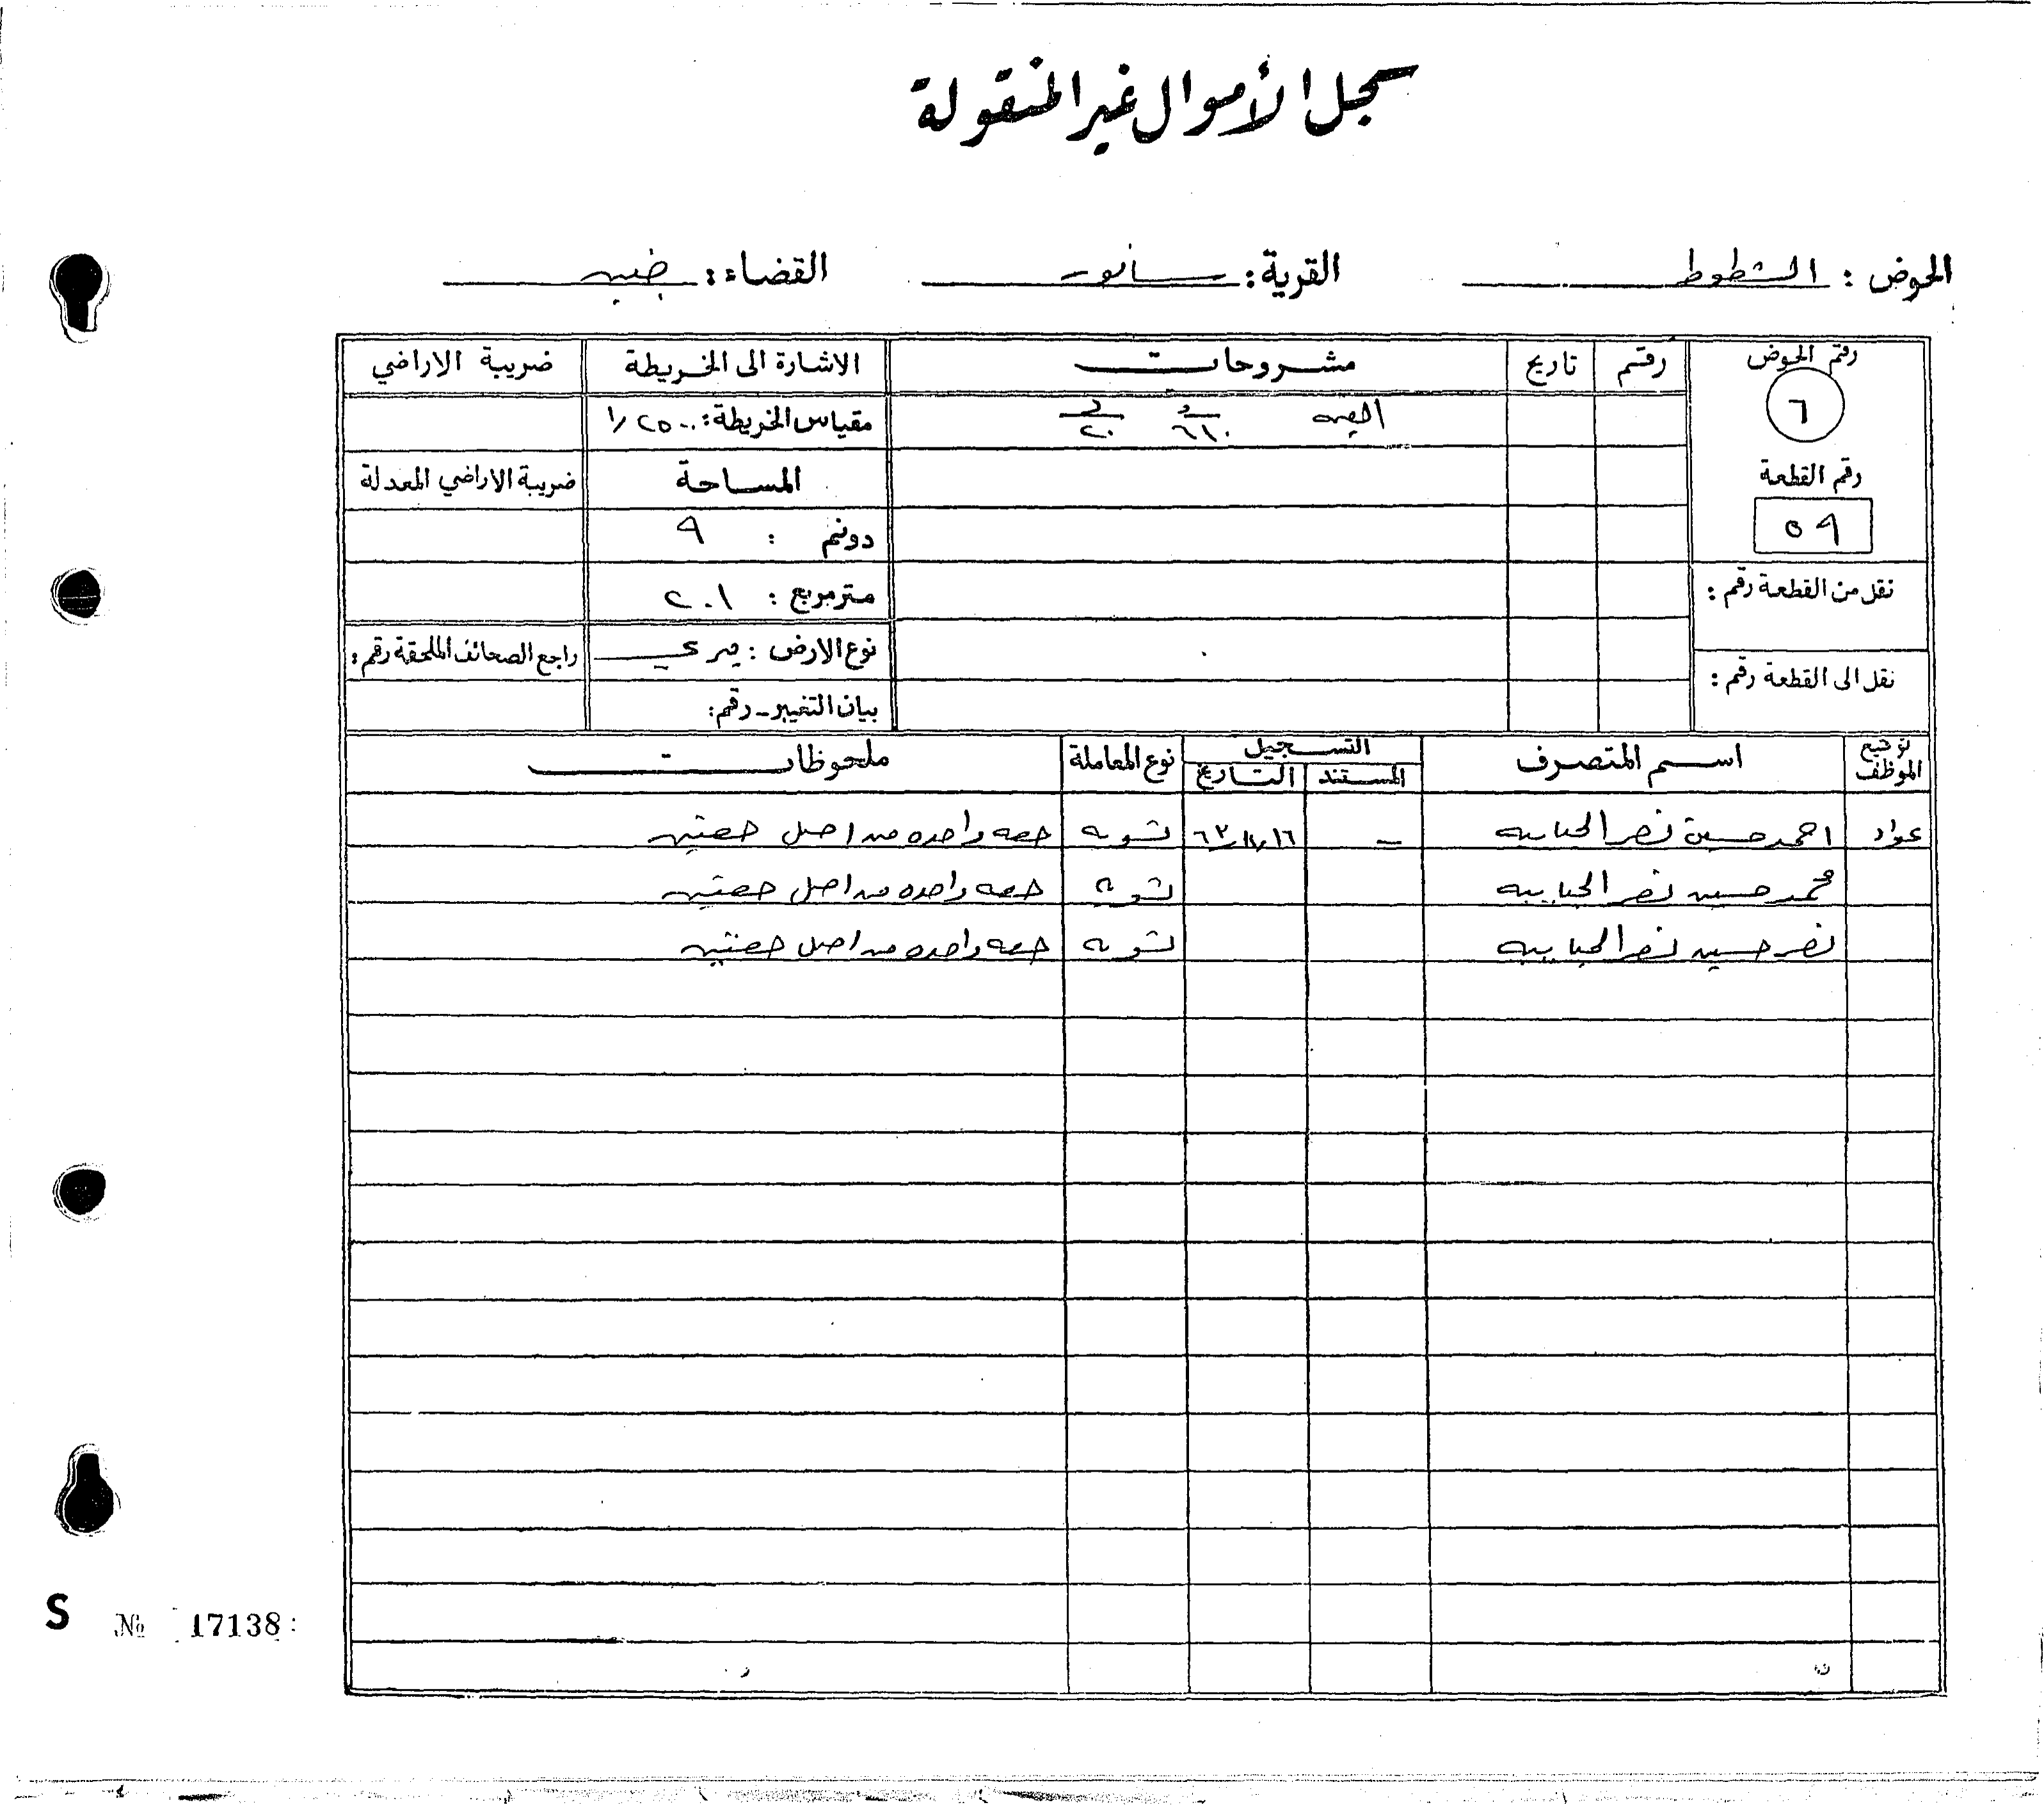 سجل الأموال غير المنقولة
الحوض : الشطوط القرية : سانور القضاء : جنين
رقم الحوض رقم تاريخ مشروحات الاشارة الى الخريطة ضريبة الاراضي
٦ ٦١٠ ٢٠ مقياس الخريطة : ١/٢٥٠٠
رقم القطعة المساحة ضريبة الاراضي المعدلة
٥٩ دونم : ٩
نقل من القطعة رقم : متر مربع : ٢٠١
نوع الارض : ميري راجع الصحائف الملحقة رقم :
نقل الى القطعة رقم : بيان التغيير - رقم :
توقيع الموظف اسم المتصرف التسجيل نوع المعاملة ملحوظات
المستند التاريخ
عواد احمد حسين نصر الحبايبه — تسويه حصه واحده من اصل حصتين
محمد حسين نصر الحبايبه تسويه حصه واحده من اصل حصتين
نصر حسين نصر الحبايبه تسويه حصه واحده من اصل حصتين
S № 17138